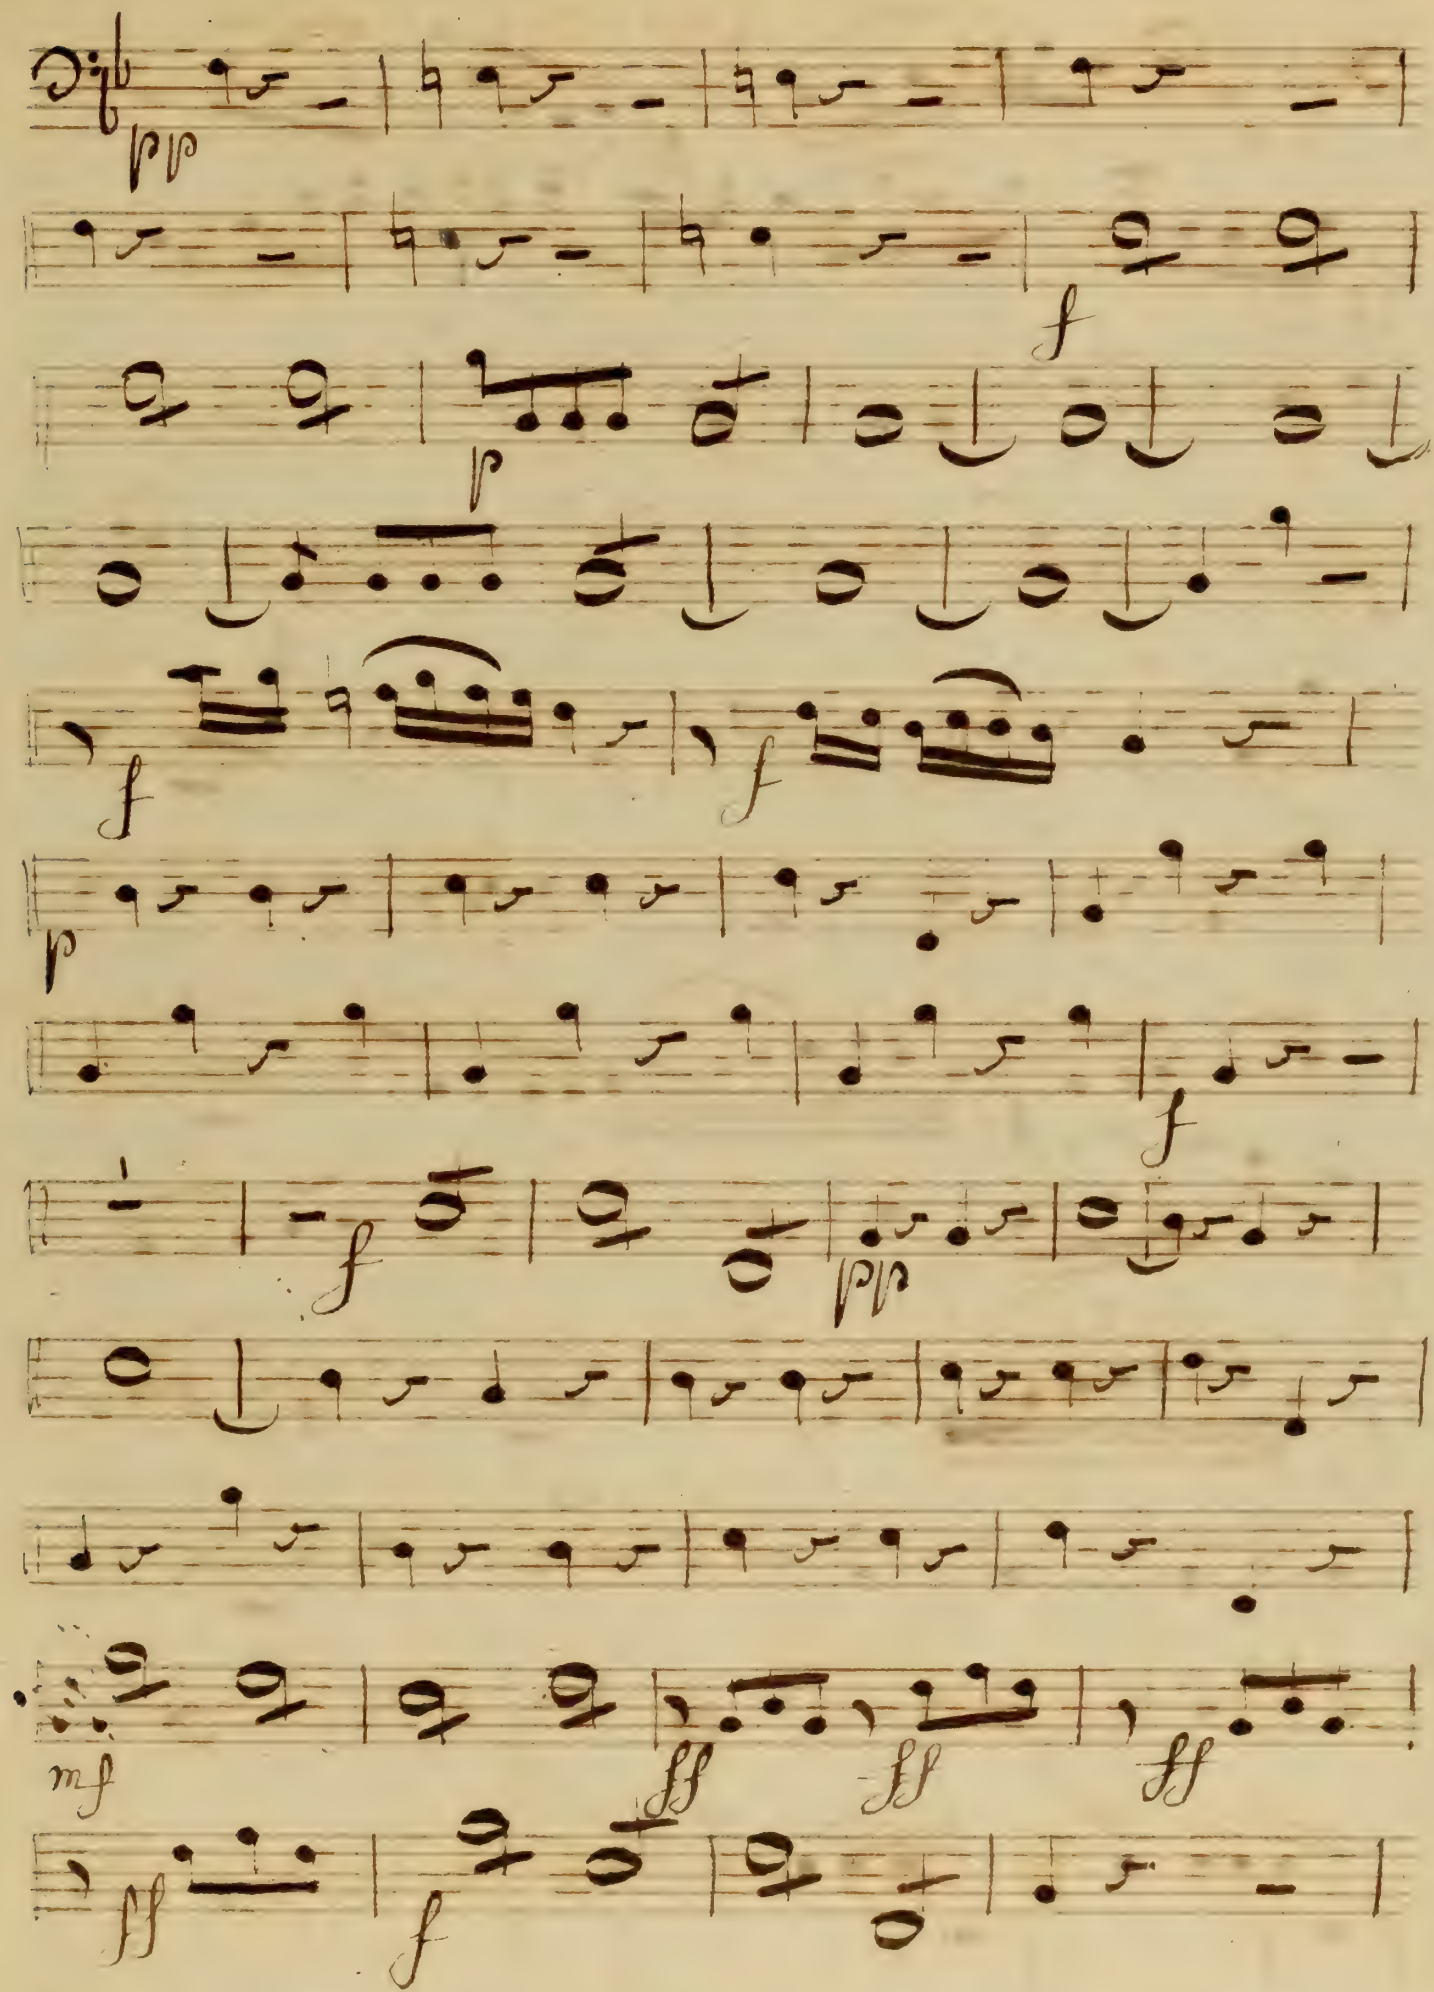 pp
f
p
f f
p
f
f pp
mf ff ff ff
ff f